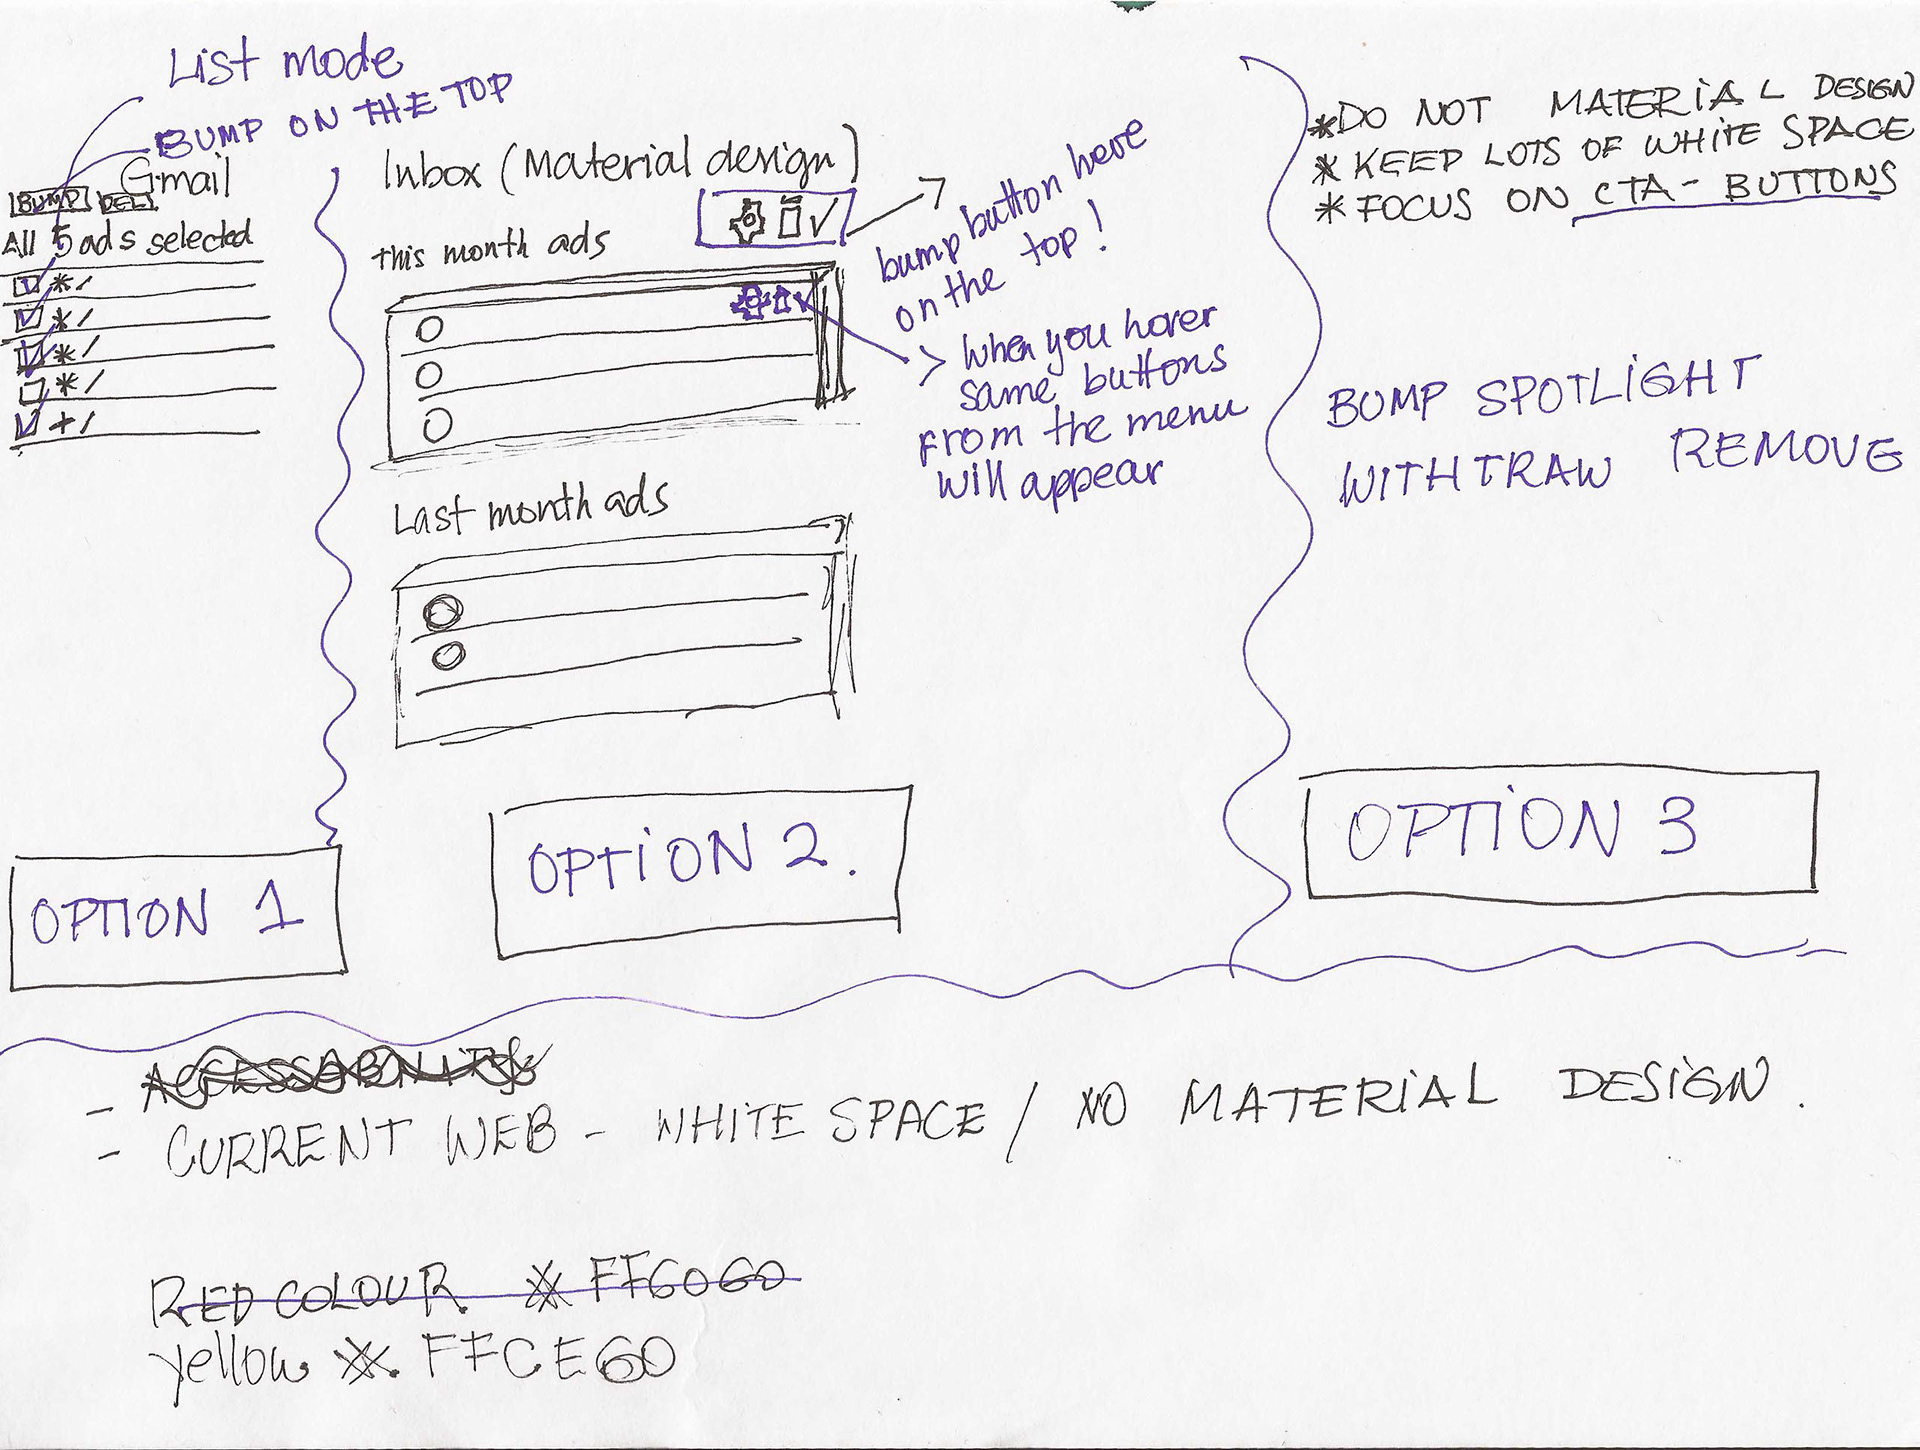 List mode
BUMP ON THE TOP
Gmail
BUMP DEL
All 5 ads selected
OPTION 1
Inbox (Material design)
this month ads
bump button here
on the top!
> When you hover
same buttons
from the menu
will appear
Last month ads
OPTION 2.
* DO NOT MATERIAL DESIGN
* KEEP LOTS OF WHITE SPACE
* FOCUS ON CTA - BUTTONS
BUMP SPOTLIGHT
WITHTRAW REMOVE
OPTION 3
- ACCESSABILITY
- CURRENT WEB - WHITE SPACE / NO MATERIAL DESIGN.
RED COLOUR # FF6060
yellow # FFCE60